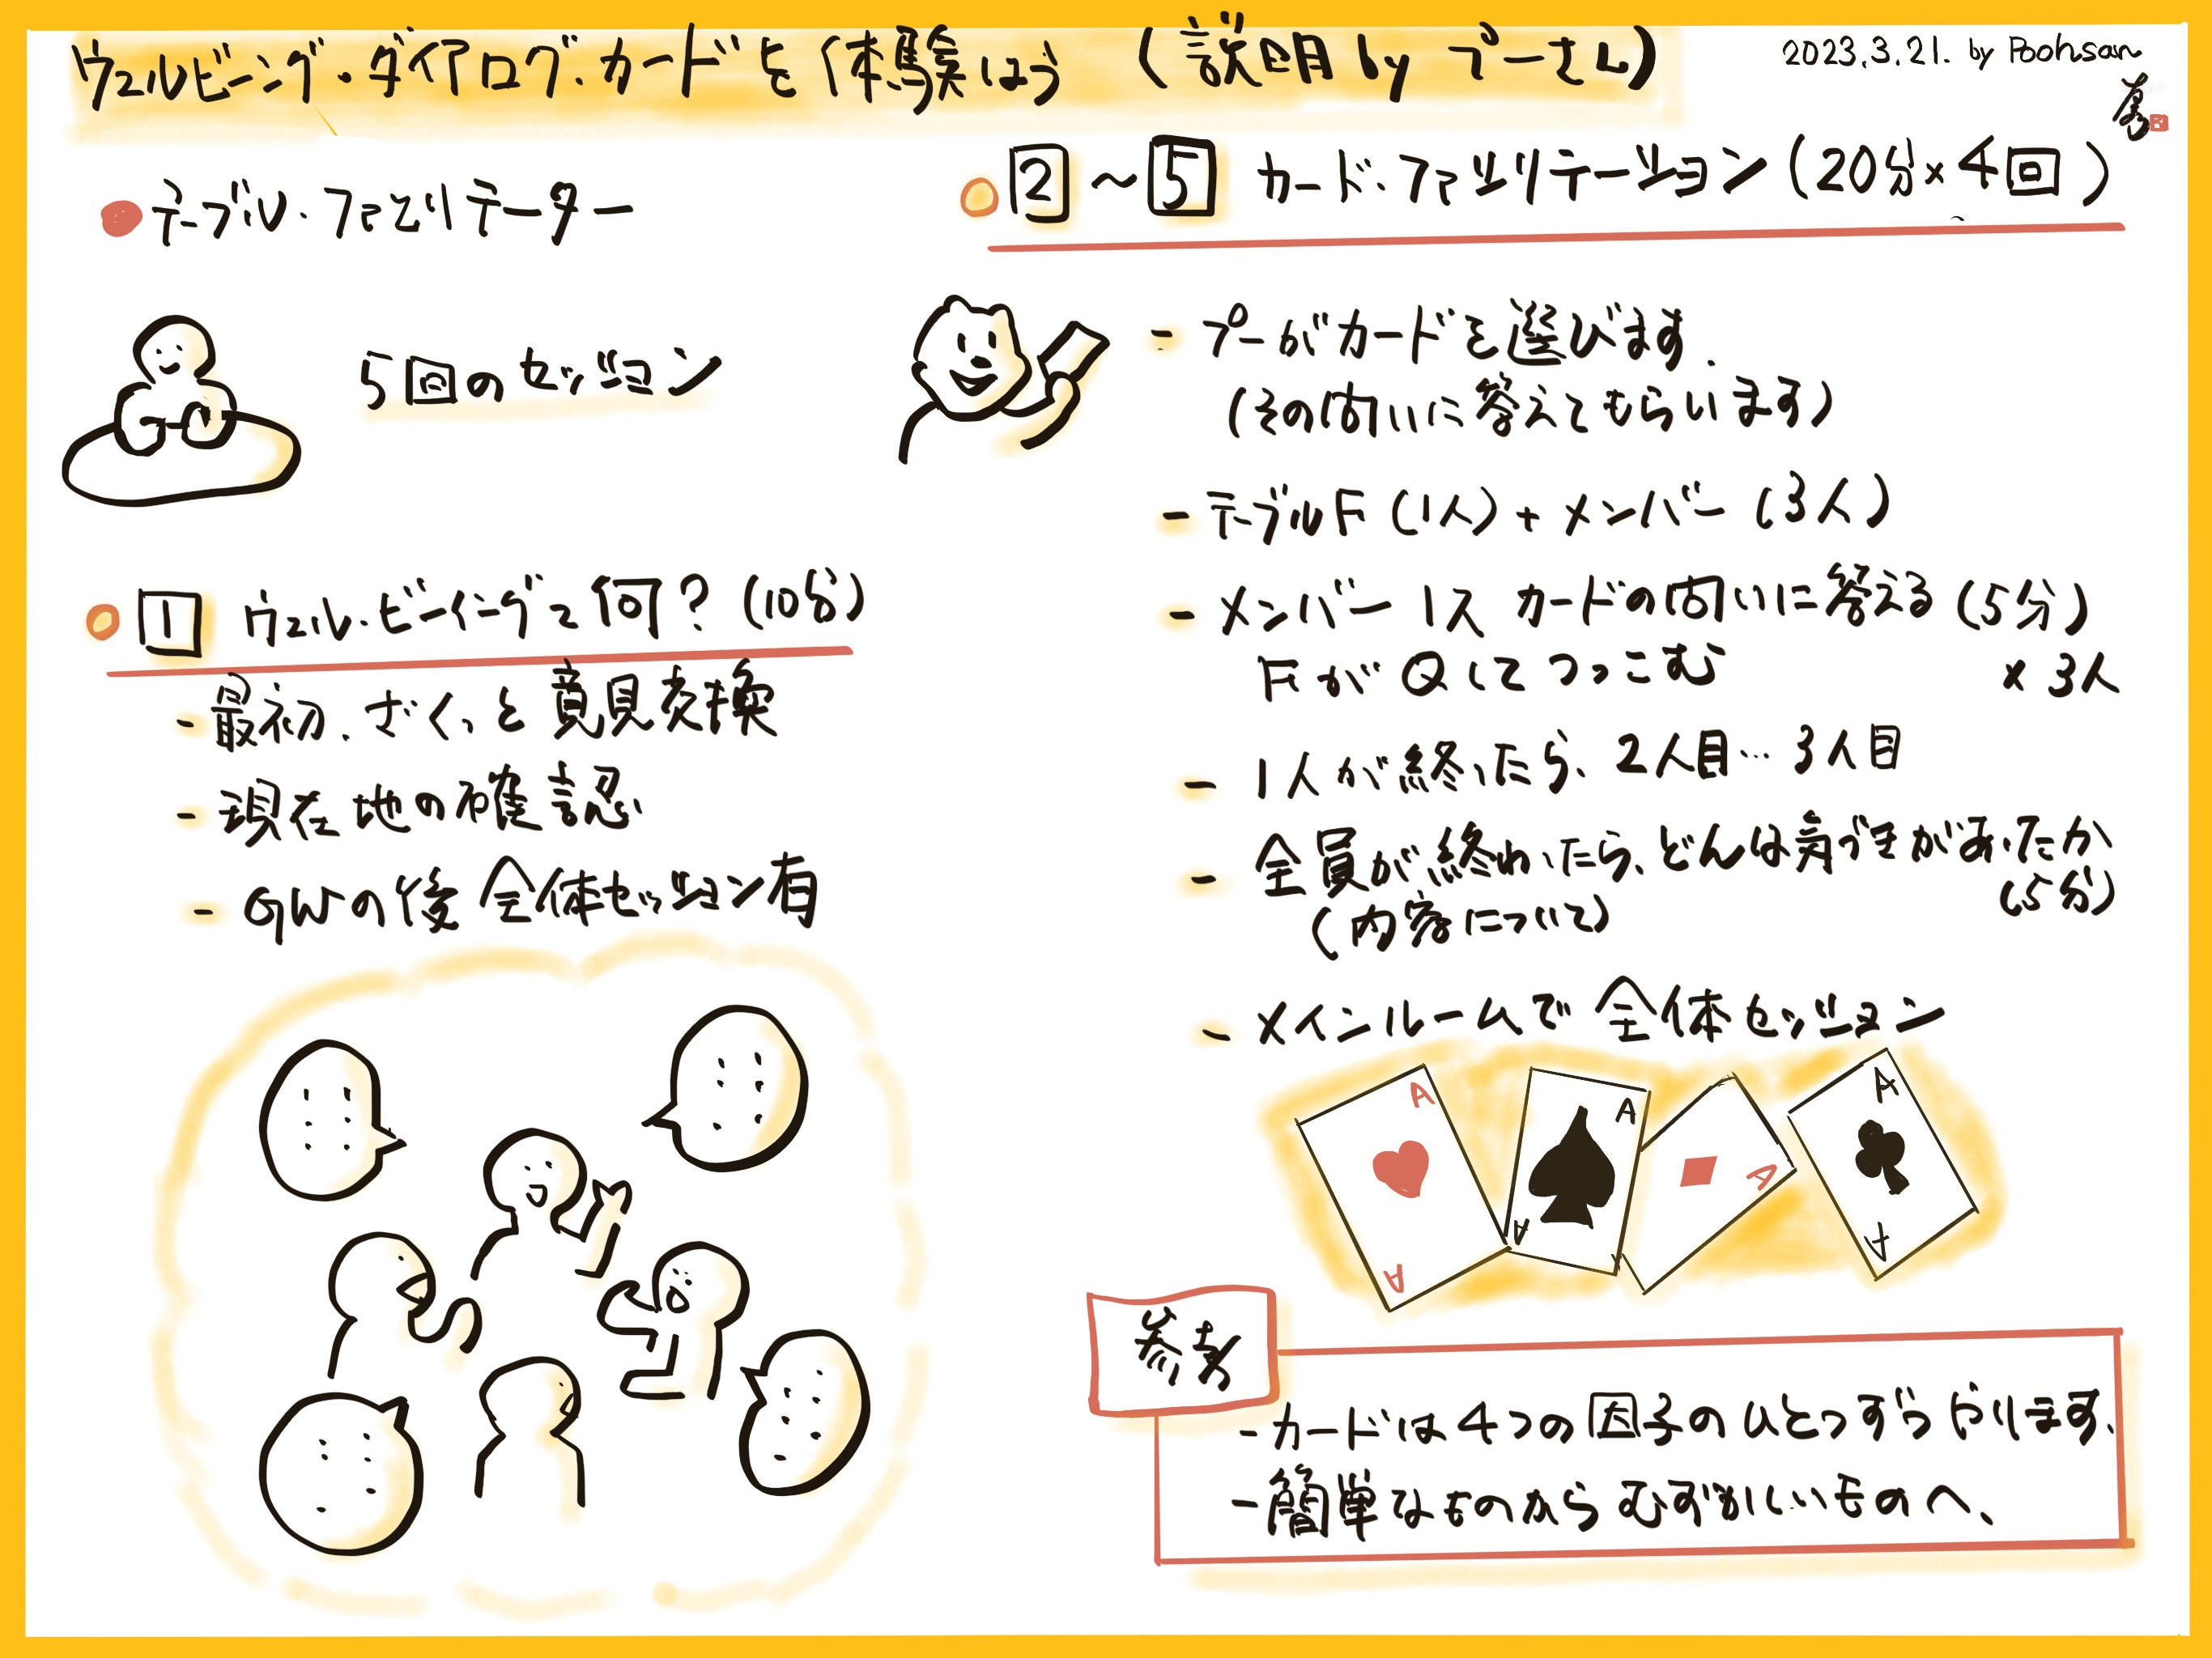 ウェルビーイング・ダイアログ・カードを体験しよう (説明 by プーさん)
2023.3.21. by Poohsan
・テーブル・ファシリテーター
5回のセッション
1 ウェル・ビーイングって何? (10分)
- 最初、ざくっと意見交換
- 現在地の確認
- GWの後 全体セッション有
2 〜 5 カード・ファシリテーション (20分×4回)
- プーがカードを選びます.
(その問いに答えてもらいます)
- テーブルF (1人) + メンバー (3人)
- メンバー 1人 カードの問いに答える (5分)
FがQしてつっこむ × 3人
- 1人が終ったら、2人目… 3人目
- 全員が終わったら、どんな気づきがあったか
(内容について) (5分)
- メインルームで 全体セッション
A
A
A
A
A
A
A
A
参考
- カードは4つの因子のひとつずつやります.
- 簡単なものから むずかしいものへ、